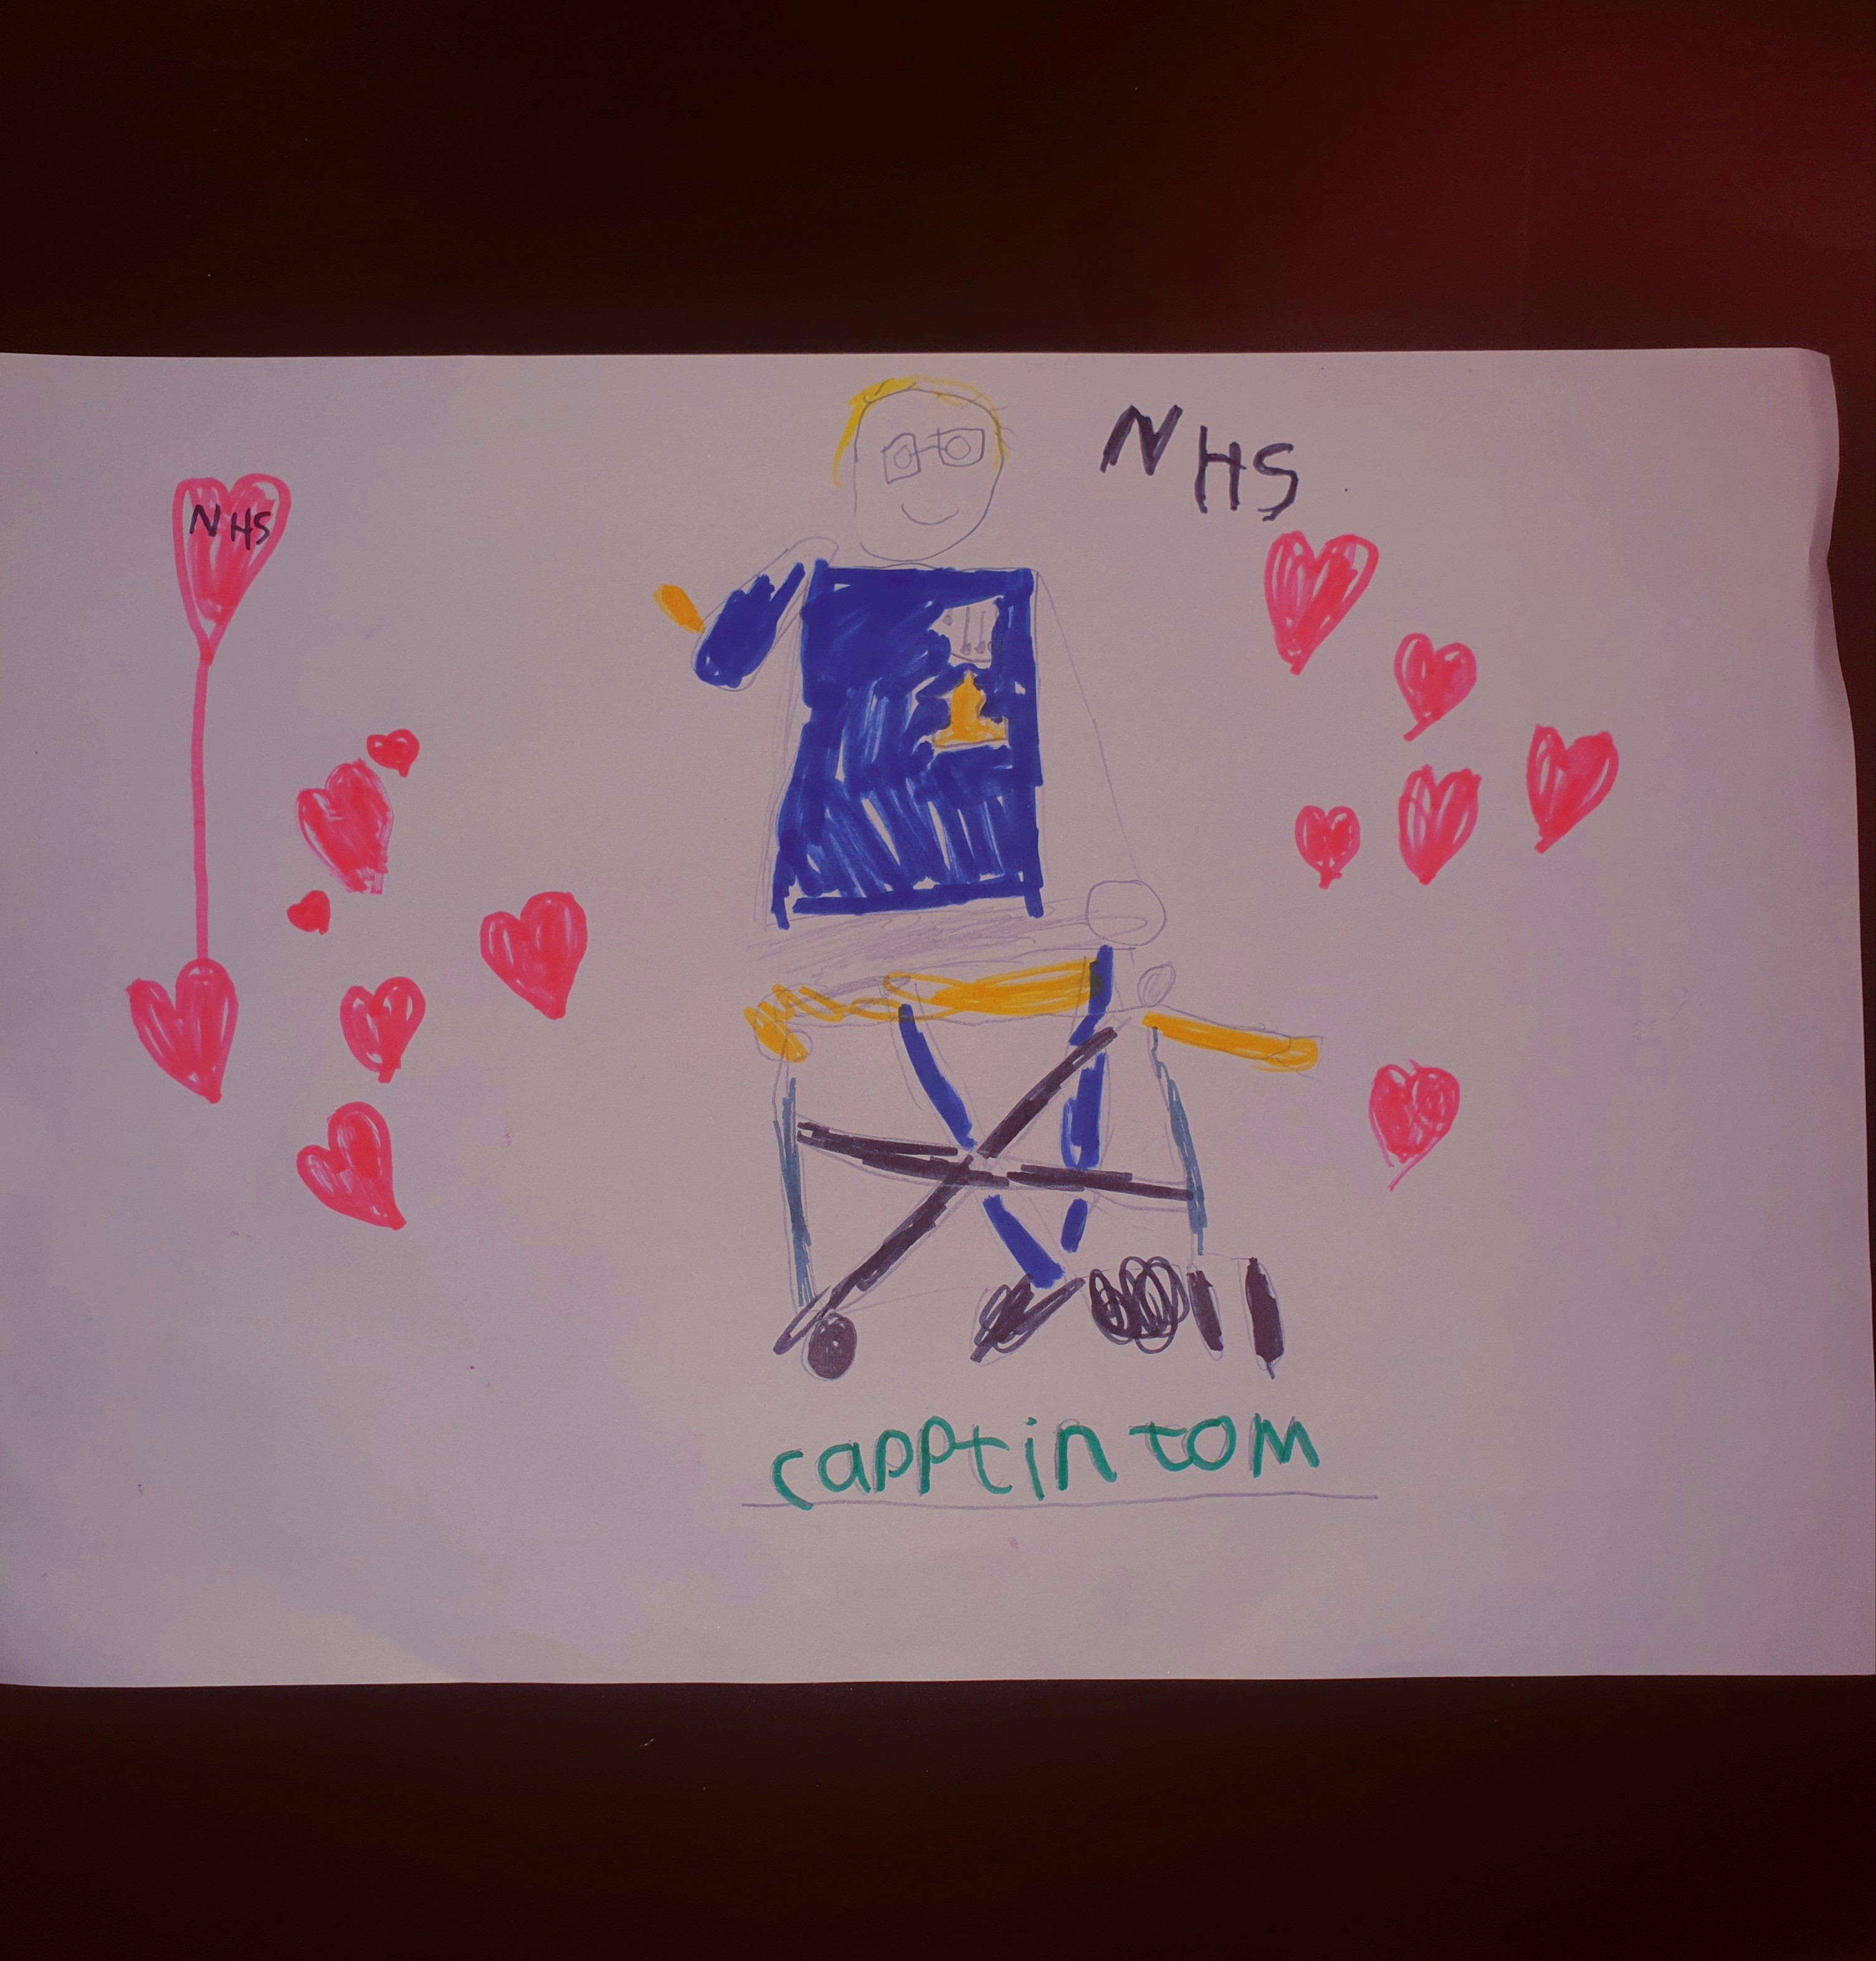 NHS
NHS
capptin tom